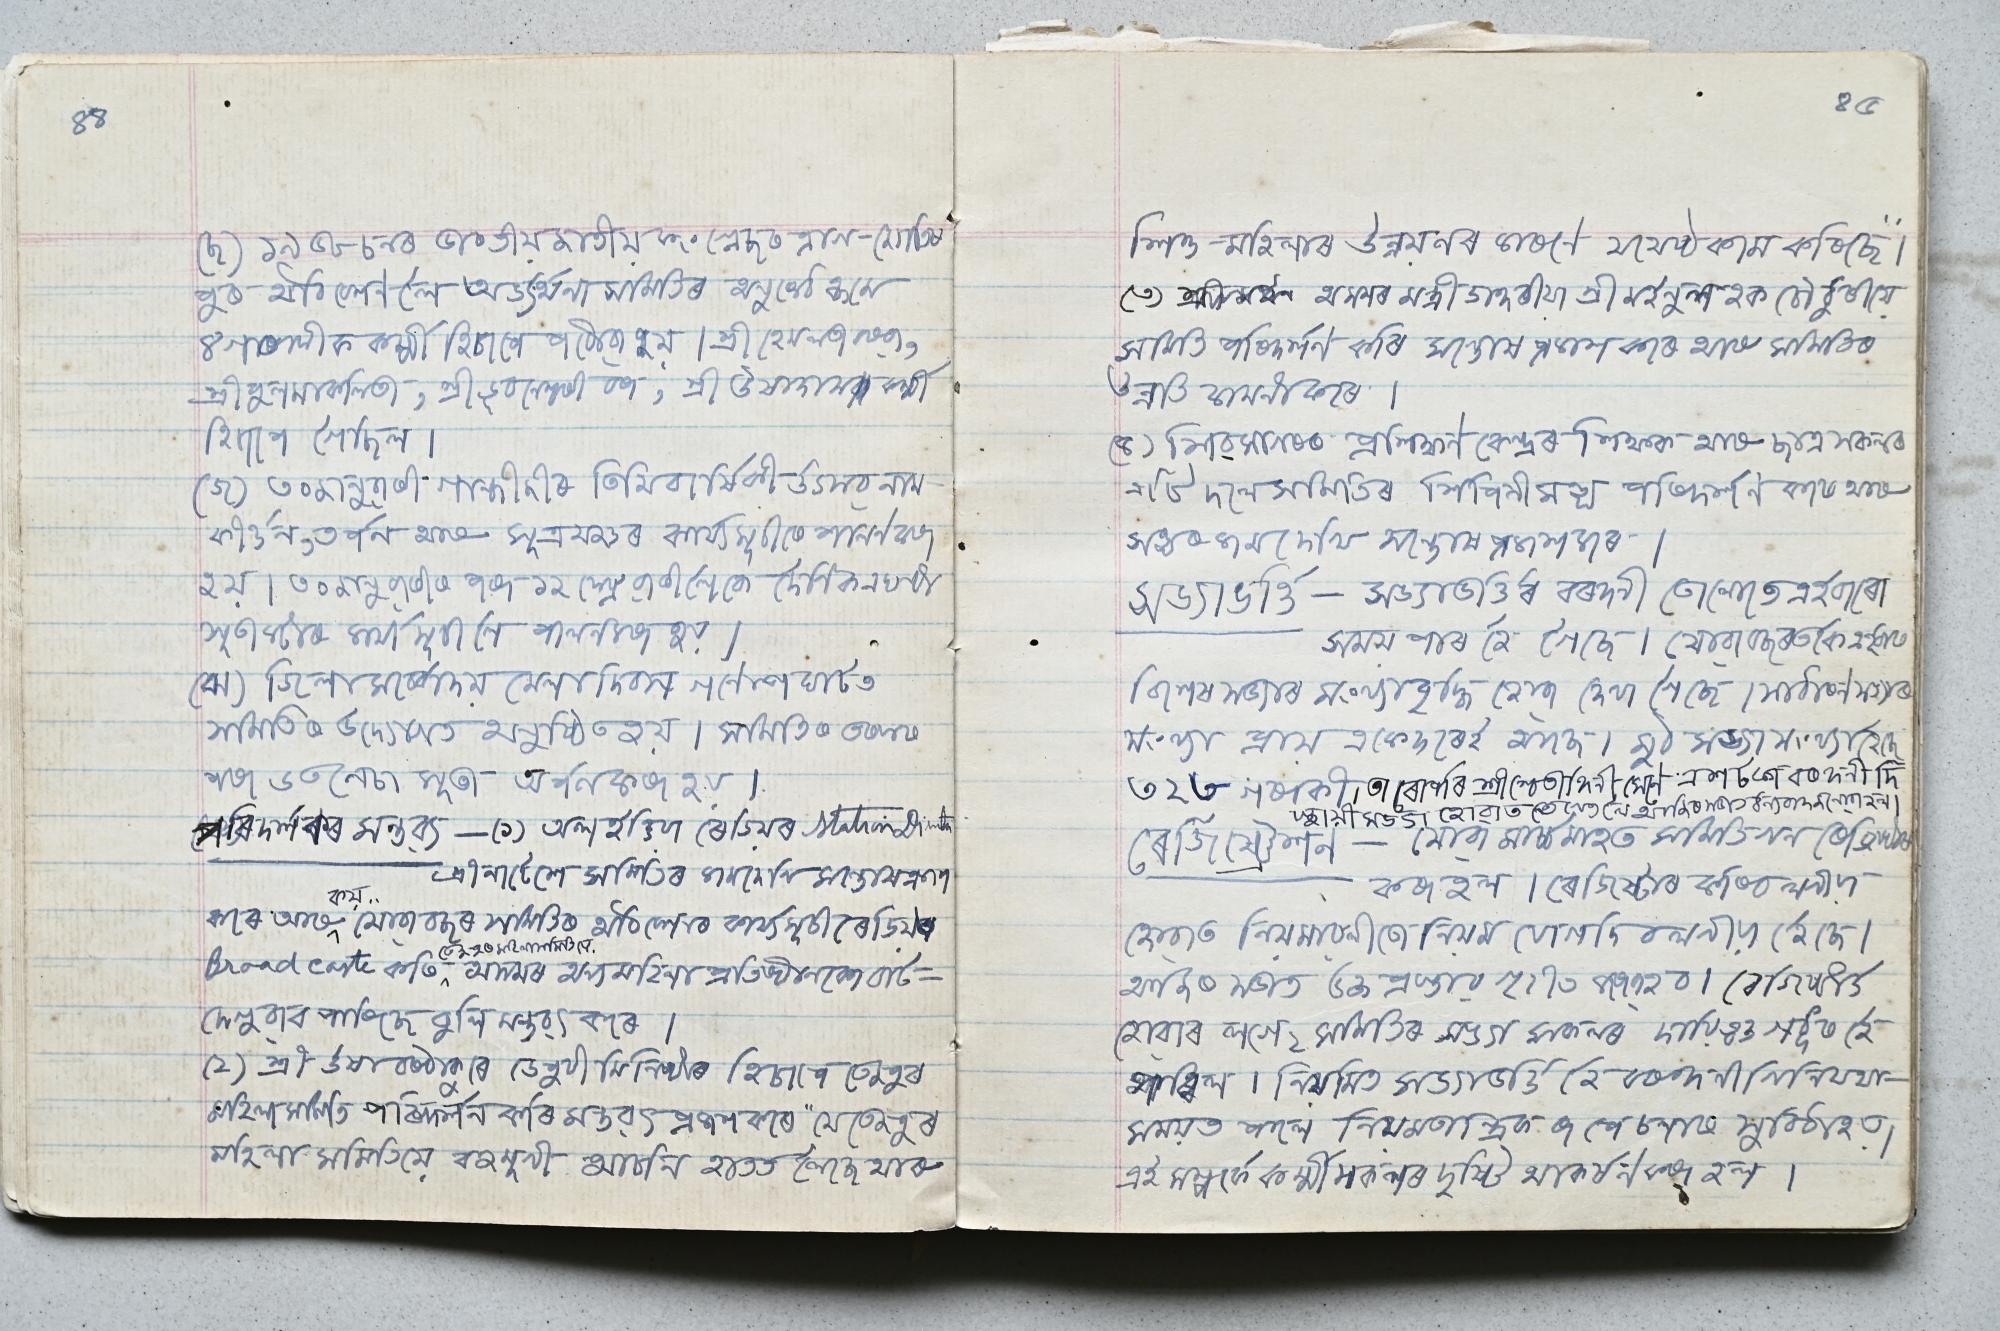 ৪৪
(ছ) ১৯৫৮ চনৰ ভাৰতীয় জাতীয় কংগ্ৰেছৰ প্ৰাগ-জ্যোতিষ
পুৰ অধিবেশনলৈ অভ্যৰ্থনা সমিতিৰ অনুৰোধ ক্ৰমে
৪গৰাকীক কৰ্ম্মী হিচাপে পঠোৱা হয়। শ্ৰী হেমলতা বৰা,
শ্ৰী পুলমা কলিতা, শ্ৰী ভুবনেশ্বৰী বৰা, শ্ৰী উষা দাস কৰ্ম্মী
হিচাপে গৈছিল।
(জ) ৩০ জানুৱাৰী গান্ধীজীৰ তিথি বাৰ্ষিকী উৎসৱ নাম
কীৰ্ত্তন, তৰ্পন আৰু সূত্ৰযজ্ঞৰ কাৰ্য্যসূচীৰে পালন কৰা
হয়। ৩০ জানুৱাৰীৰ পৰা ১২ ফেব্ৰুৱাৰীলৈকে দৈনিক এঘণ্টা
সূতা কটাৰ কাৰ্য্যসূচী লৈ পালন কৰা হয়।
(ঝ) জিলা সৰ্ব্বোদয় মেলা দিৱস গণেশ ঘাটত
সমিতিৰ উদ্যোগত অনুষ্ঠিত হয়। সমিতিৰ তৰফৰ
পৰা ৬৩ লেচা সূতা অৰ্পন কৰা হয়।
পৰিদৰ্শকৰ মন্তব্য — (১) অল ইণ্ডিয়া ৰেডিয়ৰ Station
শ্ৰী পাটেলে সমিতিৰ কাম দেখি সন্তোষ প্ৰকাশ
কৰে আৰু যোৱা বছৰ সমিতিৰ অধিবেশনৰ কাৰ্য্যসূচী ৰেডিয়ৰ
কয়..
Broad caste কৰি, অসমৰ অন্য মহিলা প্ৰতিষ্ঠানকো বাট-
তেজপুৰ মহিলা সমিতিয়ে
দেখুৱাব পাৰিছে বুলি মন্তব্য কৰে।
(২) শ্ৰী উষা বৰঠাকুৰে ডেপুটী মিনিষ্টাৰ হিচাপে তেজপুৰ
মহিলা সমিতি পৰিদৰ্শন কৰি মন্তব্য প্ৰকাশ কৰে "যে তেজপুৰ
মহিলা সমিতিয়ে বহুমুখী আচনি হাতত লৈছে আৰু
৪৫
শিশু-মহিলাৰ উন্নয়নৰ কাৰণে যথেষ্ঠ কাম কৰিছে"।
(৩) অসমৰ মন্ত্ৰী ডাঙৰীয়া শ্ৰী মইনুল হক চৌধুৰীয়ে
সমিতি পৰিদৰ্শন কৰি সন্তোষ প্ৰকাশ কৰে আৰু সমিতিৰ
উন্নতি কামনা কৰে।
(৪) শিৱসাগৰৰ প্ৰশিক্ষণ কেন্দ্ৰৰ শিক্ষক আৰু ছাত্ৰ সকলৰ
এটি দলে সমিতিৰ শিপিনী সঙ্ঘ পৰিদৰ্শন কৰে আৰু
সঙ্ঘৰ কাম দেখি সন্তোষ প্ৰকাশ কৰে।
সভ্যাভৰ্ত্তি — সভ্যাভৰ্ত্তিৰ বৰঙনী তোলোতে এইবাৰো
সময় পাৰ হৈ গৈছে। যোৱা বছৰতকৈ এইবাৰ
বিশেষ সভ্যাৰ সংখ্যা বৃদ্ধি হোৱা দেখা গৈছে। সাধাৰণ সভ্যাৰ
সংখ্যা প্ৰায় একেদৰেই আছে। মুঠ সভ্যা সংখ্যা হৈছে
৩২৬ গৰাকী, তাৰোপৰি শ্ৰী এশ টকা বৰঙনী দি
স্থায়ী সভ্যা হোৱাত তেখেতলৈ আজিৰ সভাত ধন্যবাদ জনোৱা হল।
ৰেজিষ্ট্ৰেশ্যন — যোৱা মাৰ্চ্চ মাহত সমিতিখন ৰেজিষ্টাৰ
কৰা হল। ৰেজিষ্টাৰ কৰিব লগীয়া
হোৱাত নিয়মাৱলীতো নিয়ম যোগ দিব লগীয়া হৈছে।
আজিৰ সভাত উক্ত প্ৰস্তাব গৃহীত কৰা হব। ৰেজিষ্টাৰ্ড
হোৱাৰ লগে২ সমিতিৰ সভ্যা সকলৰ দায়িত্বও গধুৰ হৈ
পৰিল। নিয়মিত সভ্যাভৰ্ত্তি হৈ বৰঙনী দিনি যথা-
সময়ত পালে নিয়মতান্ত্ৰিক ৰূপে চলাত সুবিধা হয়।
এই সম্পৰ্কে কৰ্ম্মী সকলৰ দৃষ্টি আকৰ্ষন কৰা হল।